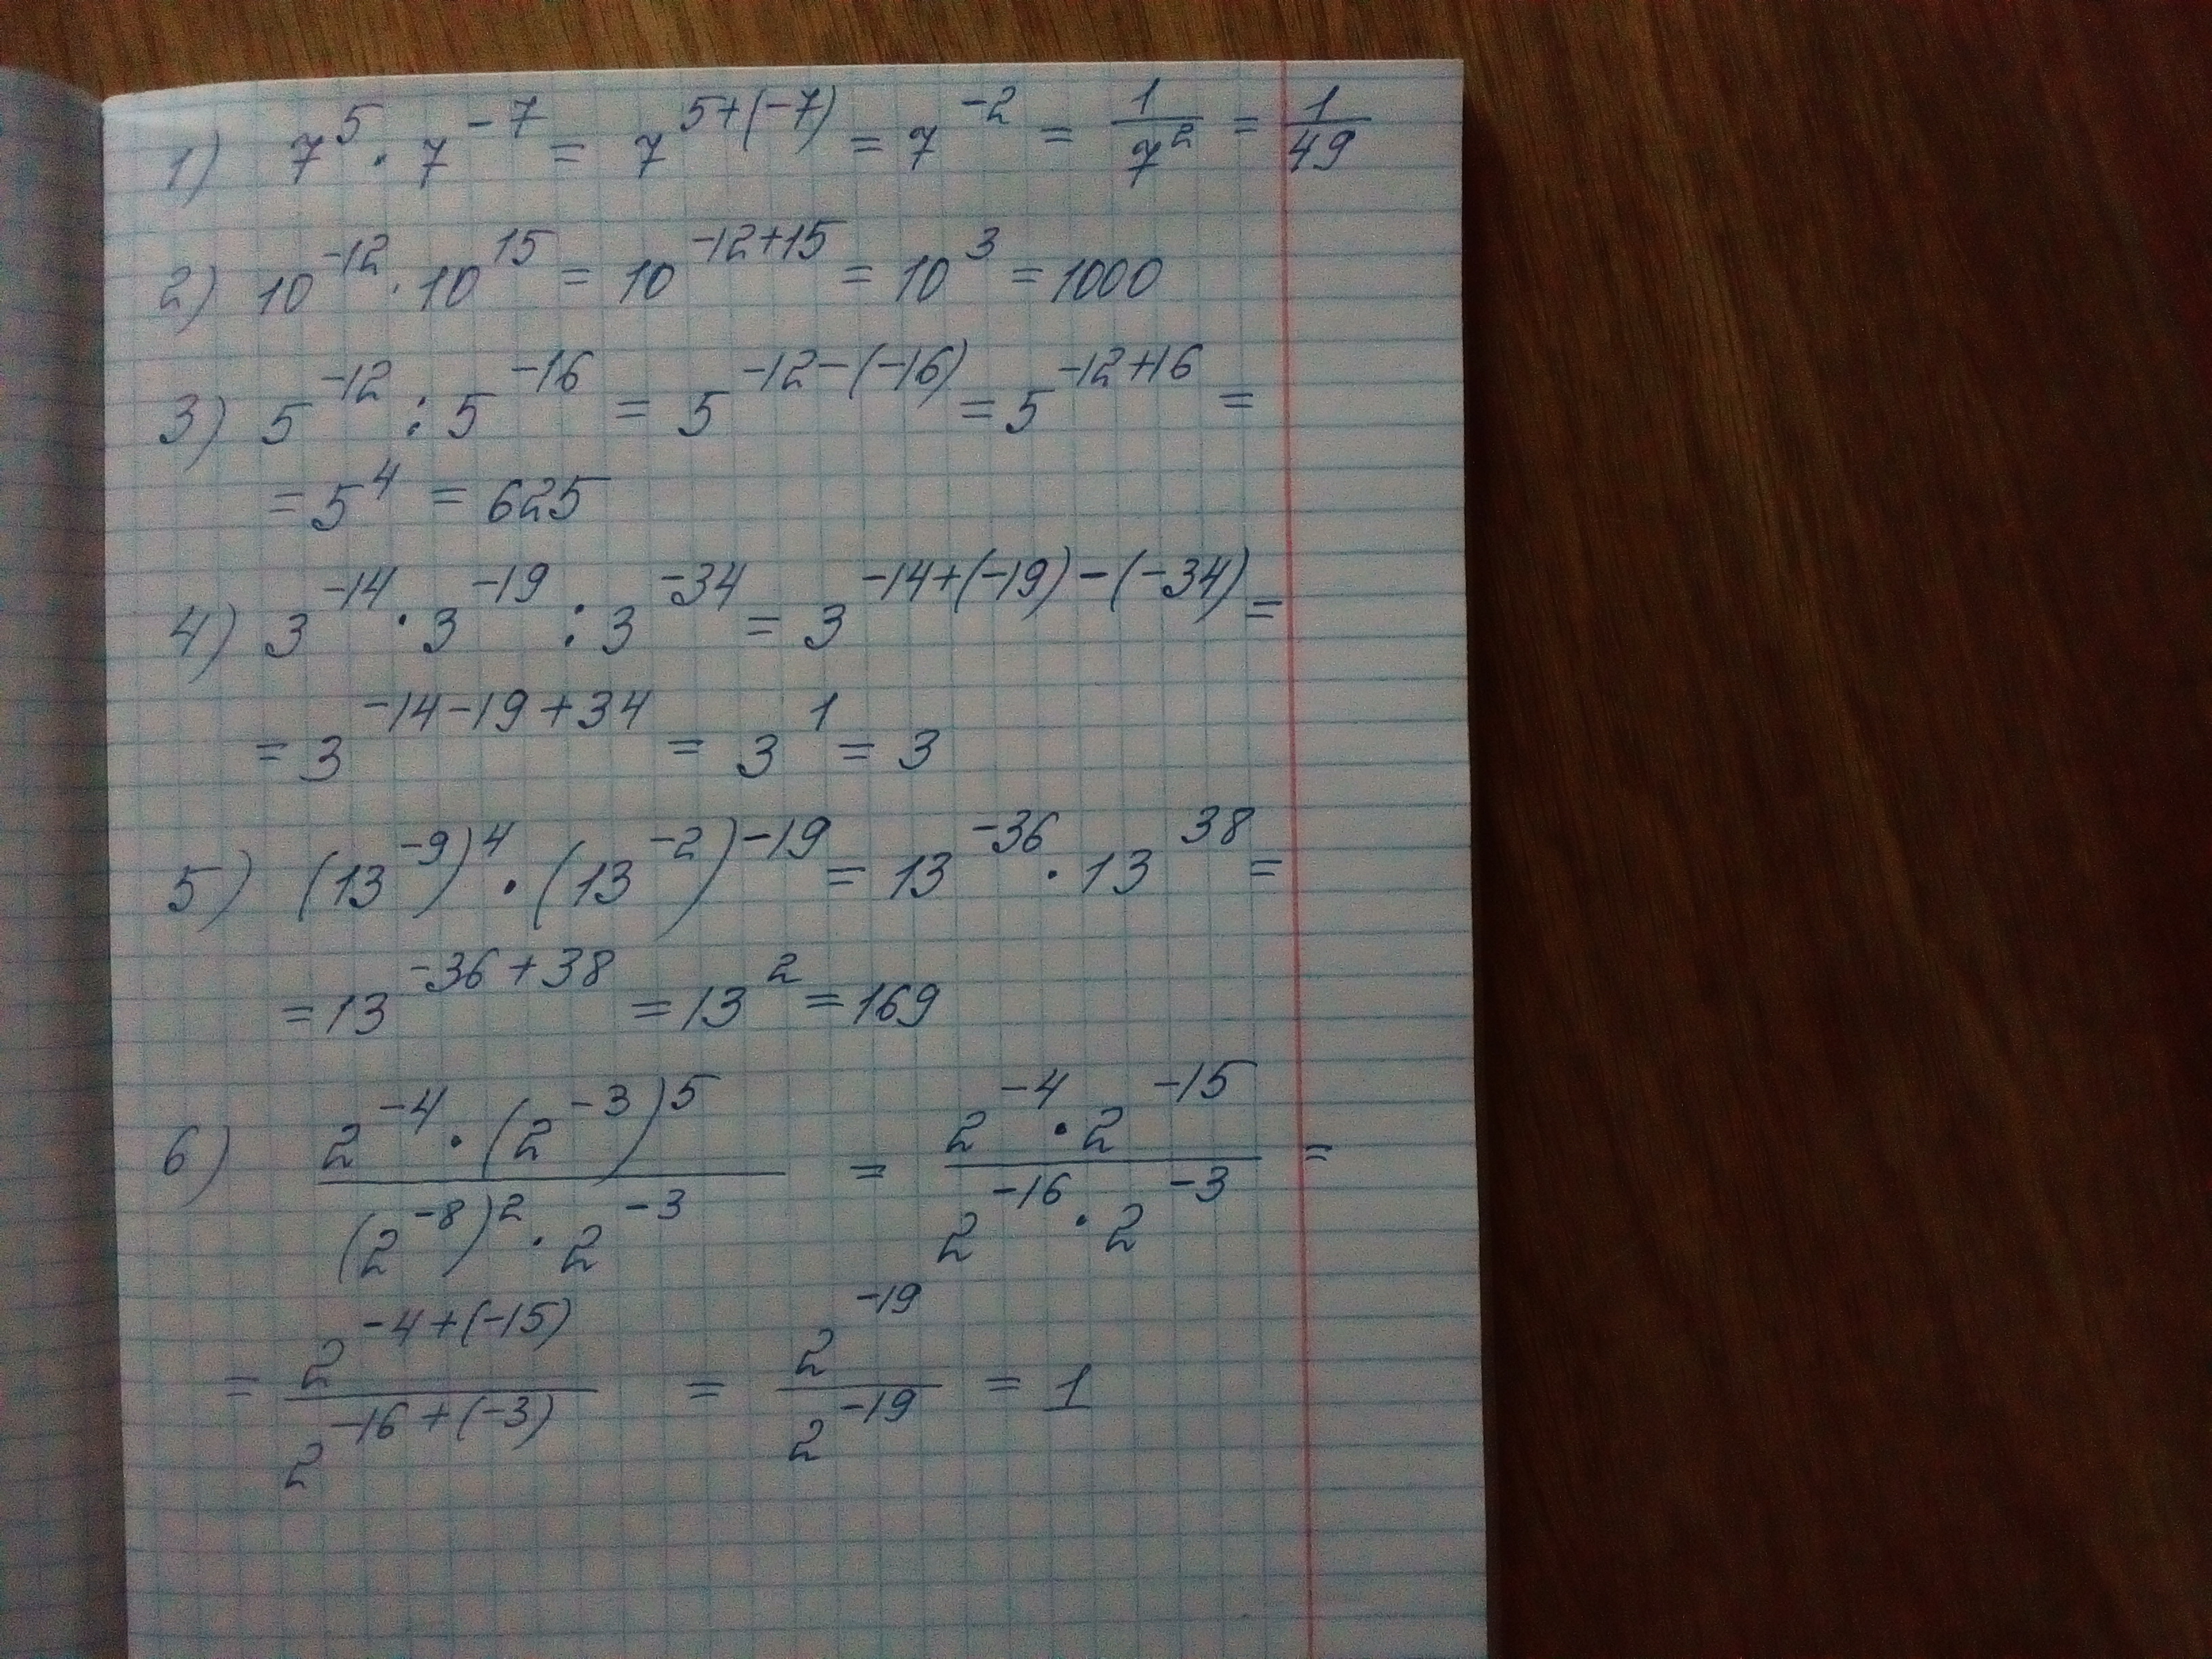 1) 7^5 · 7^{-7} = 7^{5+(-7)} = 7^{-2} = \frac{1}{7^2} = \frac{1}{49}
2) 10^{-12} · 10^{15} = 10^{-12+15} = 10^3 = 1000
3) 5^{-12} : 5^{-16} = 5^{-12-(-16)} = 5^{-12+16} =
= 5^4 = 625
4) 3^{-14} · 3^{-19} : 3^{-34} = 3^{-14+(-19)-(-34)} =
= 3^{-14-19+34} = 3^1 = 3
5) (13^{-9})^4 · (13^{-2})^{-19} = 13^{-36} · 13^{38} =
= 13^{-36+38} = 13^2 = 169
6) \frac{2^{-4} · (2^{-3})^5}{(2^{-8})^2 · 2^{-3}} = \frac{2^{-4} · 2^{-15}}{2^{-16} · 2^{-3}} =
= \frac{2^{-4+(-15)}}{2^{-16+(-3)}} = \frac{2^{-19}}{2^{-19}} = 1